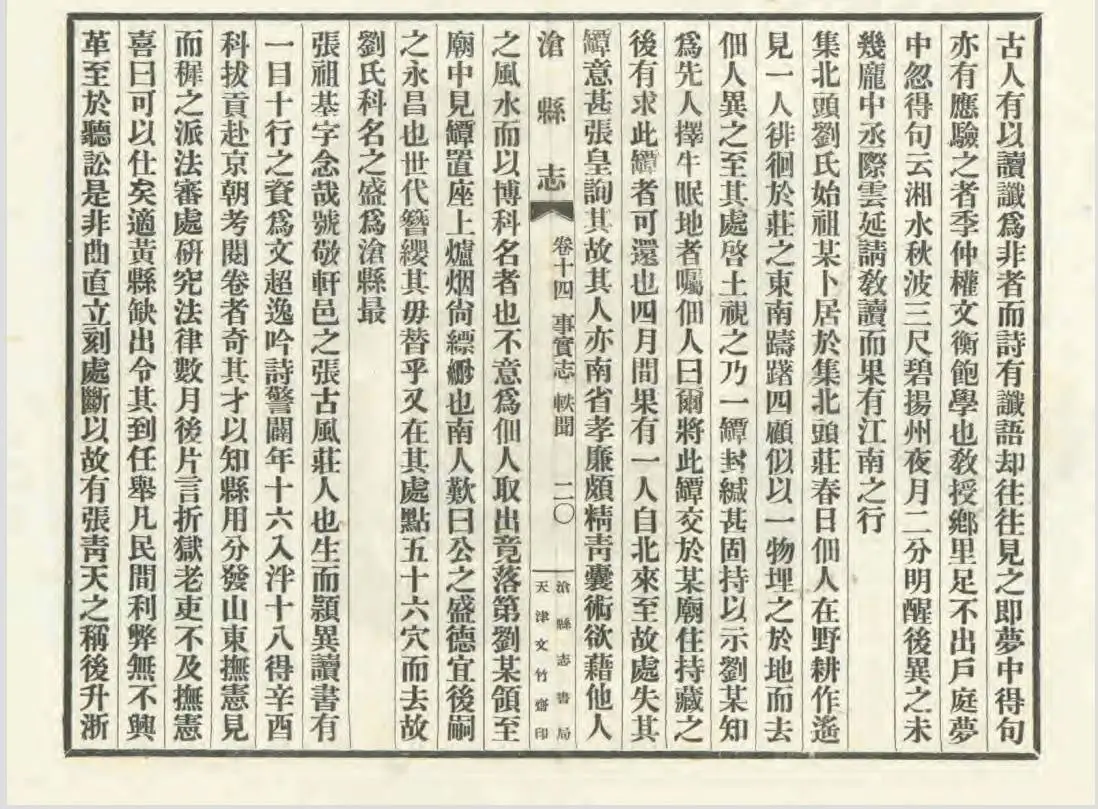 古人有以讀讖爲非者而詩有讖語却往往見之即夢中得句
亦有應驗之者季仲權文衡飽學也敎授鄉里足不出戶庭夢
中忽得句云湘水秋波三尺碧揚州夜月二分明醒後異之未
幾龐中丞際雲延請敎讀而果有江南之行
集北頭劉氏始祖某卜居於集北頭莊春日佃人在野耕作遙
見一人徘徊於莊之東南躊躇四顧似以一物埋之於地而去
佃人異之至其處啓土視之乃一罈封緘甚固持以示劉某知
爲先人擇牛眠地者囑佃人曰爾將此罈交於某廟住持藏之
後有求此罈者可還也四月間果有一人自北來至故處失其
罈意甚張皇詢其故其人亦南省孝廉頗精靑囊術欲藉他人
滄縣志 卷十四 事實志 軼聞 二〇
滄縣志書局
天津文竹齋印
之風水而以博科名者也不意爲佃人取出竟落第劉某領至
廟中見罈置座上爐烟尙縹緲也南人歎曰公之盛德宜後嗣
之永昌也世代簪纓其毋替乎又在其處點五十六穴而去故
劉氏科名之盛爲滄縣最
張祖基字念哉號敬軒邑之張古風莊人也生而穎異讀書有
一目十行之資爲文超逸吟詩警闢年十六入泮十八得辛酉
科拔貢赴京朝考閱卷者奇其才以知縣用分發山東撫憲見
而穉之派法審處硏究法律數月後片言折獄老吏不及撫憲
喜曰可以仕矣適黃縣缺出令其到任舉凡民間利弊無不興
革至於聽訟是非曲直立刻處斷以故有張靑天之稱後升浙